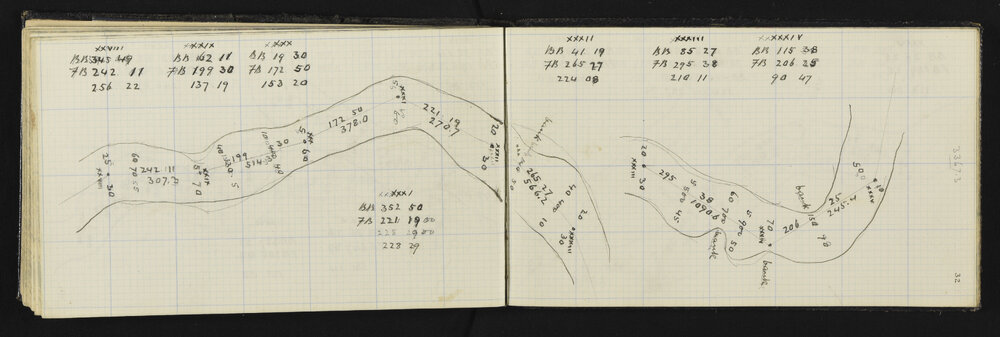 XXVIII
BB 345 49
FB 242 11
256 22
XXIX
BB 162 11
FB 199 30
137 19
XXX
BB 19 30
FB 172 50
153 20
25
XXVIII
30
60
70
55
242 11
307.3
5
XXIX
70
40
30
5
199
514.3
30
40
5
XXX
60
172 50
378.0
XXXI
221 19
270.7
20
XXXII
30
XXXI
BB 352 50
FB 221 19 00
228 29
XXXII
BB 41 19
FB 265 27
224 08
XXXIII
BB 85 27
FB 295 38
210 11
XXXIV
BB 115 38
FB 206 25
90 47
bank
20
50
265 27
566.2
40
400
10
20
XXXIII
30
20
XXXIII
30
295
38
1090.6
5
500
45
60
700
5
900
50
bank
70
XXXIV
bank
206
25
245.4
bank
150
90
50
10
XXXV
3367.3
32